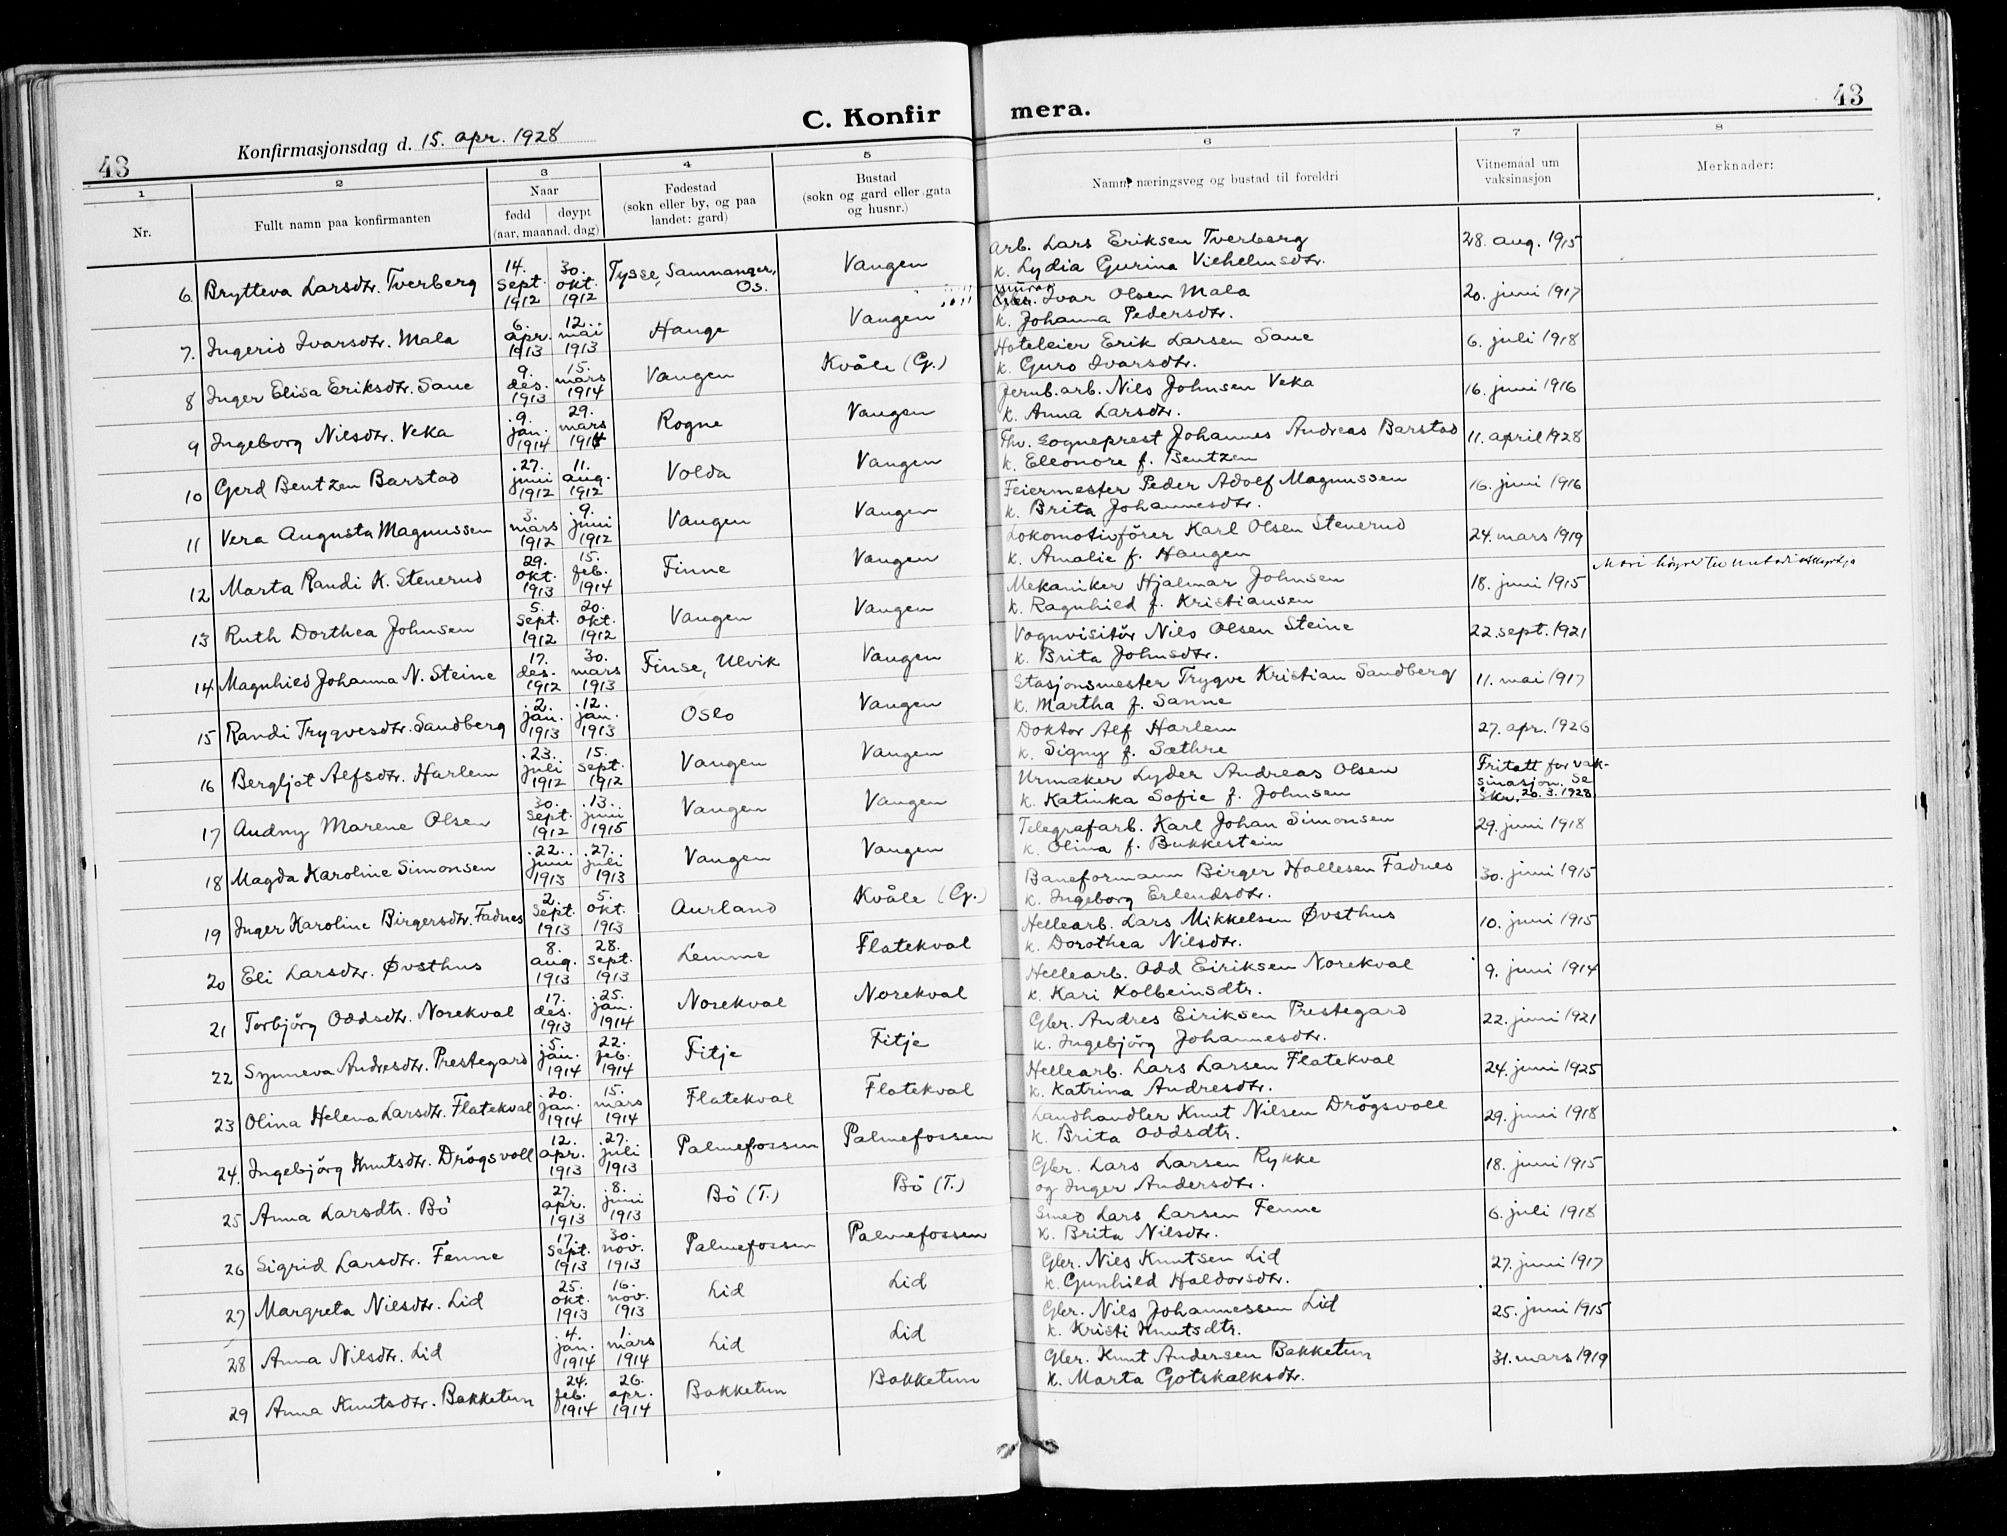 C. Konfirmera.
43
43
Konfirmasjonsdag d. 15. apr. 1928
1 2 3 4 5 6 7 8
Nr.
Fullt namn paa konfirmanten
Naar
fødd døypt
(aar, maanad, dag)
Fødestad
(sokn eller by, og paa
landet: gard)
Bustad
(sokn og gard eller gata
og husnr.)
Namn, næringsveg og bustad til foreldri
Vitnemaal um
vaksinasjon
Merknader:
6 Brytteva Larsdtr. Tverberg 14. sept. 1912 30. okt. 1912 Tysse, Samnanger, Os. Vangen Arb. Lars Eriksen Tverberg
k. Lydia Gurina Vilhelmsdtr. 28. aug. 1915
7. Ingerid Ivarsdtr. Mala 6. apr. 1913 12. mai 1913 Hauge Vangen Ivar Olsen Mala
k. Johanna Pedersdtr. 20. juni 1917
8 Inger Elisa Eriksdtr. Saue 9. des. 1913 15. mars 1914 Vangen Kvåle (G.) Hoteleier Erik Larsen Saue
k. Guro Ivarsdtr. 6. juli 1918
9 Ingeborg Nilsdtr. Veka 9. jan. 1914 29. mars 1914 Rogne Vangen Jernb.arb. Nils Johnsen Veka
k. Anna Larsdtr. 16. juni 1916
10 Gerd Bentzen Barstad 27. juni 1912 11. aug. 1912 Volda Vangen Fhv. Sogneprest Johannes Andreas Barstad
k. Eleonore f. Bentzen 11. april 1928
11 Vera Augusta Magnussen 3. mars 1912 9. juni 1912 Vangen Vangen Feiermester Peder Adolf Magnussen
k. Brita Johannesdtr. 16. juni 1916
12 Marta Randi K. Stenerud 29. okt. 1913 15. feb. 1914 Finne Vangen Lokomotivförer Karl Olsen Stenerud
k. Amalie f. Haugen 24. mars 1919
13 Ruth Dorthea Johnsen 5. sept. 1912 20. okt. 1912 Vangen Vangen Mekaniker Hjalmar Johnsen
k. Ragnhild f. Kristiansen 18. juni 1915
14 Magnhild Johanna N. Steine 17. des. 1912 30. mars 1913 Finse, Ulvik Vangen Vognvisitör Nils Olsen Steine
k. Brita Johnsdtr. 22. sept. 1921
15 Randi Trygvesdtr. Sandberg 2. jan. 1913 12. jan. 1913 Oslo Vangen Stasjonsmester Trygve Kristian Sandberg
k. Martha f. Sanne 11. mai 1917
16 Bergljot Alfsdtr. Harlem 23. juli 1912 15. sept. 1912 Vangen Vangen Doktor Alf Harlem
k. Signy f. Sæthre 27. apr. 1926
17 Audny Marene Olsen 30. sept. 1912 13. juni 1915 Vangen Vangen Urmaker Lyder Andreas Olsen
k. Katinka Sofie f. Johnsen Fritatt for vak-
sinasjon. Se
skr. 20.3.1928
18 Magda Karoline Simonsen 22. juni 1913 27. juli 1913 Vangen Vangen Telegrafarb. Karl Johan Simonsen
k. Olina f. Bukkestein 29. juni 1918
19 Inger Karoline Birgersdtr. Fadnes 2. sept. 1913 5. okt. 1913 Aurland Kvåle (G.) Baneformann Birger Hallesen Fadnes
k. Ingeborg Erlendsdtr. 30. juni 1915
20 Eli Larsdtr. Øvsthus 8. aug. 1913 28. sept. 1913 Lemme Flatekval Hellearb. Lars Mikkelsen Øvsthus
k. Dorothea Nilsdtr. 10. juni 1915
21 Torbjörg Oddsdtr. Norekval 17. des. 1913 25. jan. 1914 Norekval Norekval Hellearb. Odd Eiriksen Norekval
k. Kari Kolbeinsdtr. 9. juni 1914
22 Synneva Andresdtr. Prestegard 5. jan. 1914 22. feb. 1914 Fitje Fitje Gbr. Andres Eiriksen Prestegard
k. Ingebjörg Johannesdtr. 22. juni 1921
23 Olina Helena Larsdtr. Flatekval 20. jan. 1914 15. mars 1914 Flatekval Flatekval Hellearb. Lars Larsen Flatekval
k. Katrina Andresdtr. 24. juni 1925
24. Ingebjörg Knutsdtr. Drögsvoll 12. apr. 1913 27. juli 1913 Palmefossen Palmefossen Landhandler Knut Nilsen Drögsvoll
k. Brita Oddsdtr. 29. juni 1918
25 Anna Larsdtr. Bö 27. apr. 1913 8. juni 1913 Bö (T.) Bö (T.) Gbr. Lars Larsen Rykke
og Inger Andersdtr. 18. juni 1915
26 Sigrid Larsdtr. Fenne 17. sept. 1913 30. nov. 1913 Palmefossen Palmefossen Smed Lars Larsen Fenne
k. Brita Nilsdtr. 6. juli 1918
27 Margreta Nilsdtr. Lid 25. okt. 1913 16. nov. 1913 Lid Lid Gbr. Nils Knutsen Lid
k. Gunhild Haldorsdtr. 27. juni 1917
28 Anna Nilsdtr. Lid 4. jan. 1914 1. mars 1914 Lid Lid Gbr. Nils Johannessen Lid
k. Kristi Knutsdtr. 25. juni 1915
29 Anna Knutsdtr. Bakketun 24. feb. 1914 26. apr. 1914 Bakketun Bakketun Gbr. Knut Andersen Bakketun
k. Marta Gotskalksdtr. 31. mars 1919